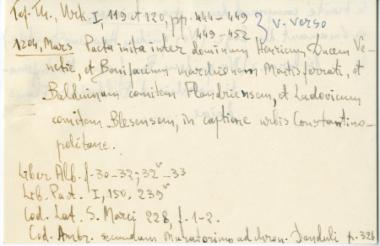 Taf. Th., Urk. I, 119 et 120, pp. 444-449
449-452 } V. verso
1204, Mars Pacta inita inter dominum Henricum Ducem Ve-
netie, et Bonifacium marchionem Montisferrati, et
Balduinum comitem Flandrensem, et Ludovicum
comitem Blesensem, in captione urbis Constantino-
politane.
Liber Alb. f. 30-32; 32v-33
Lib. Pact. I, 150. 239v
Cod. Lat. S. Marci 228, f. 1-2.
Cod. Ambr. secundum Muratorium ad chron. Danduli p. 326